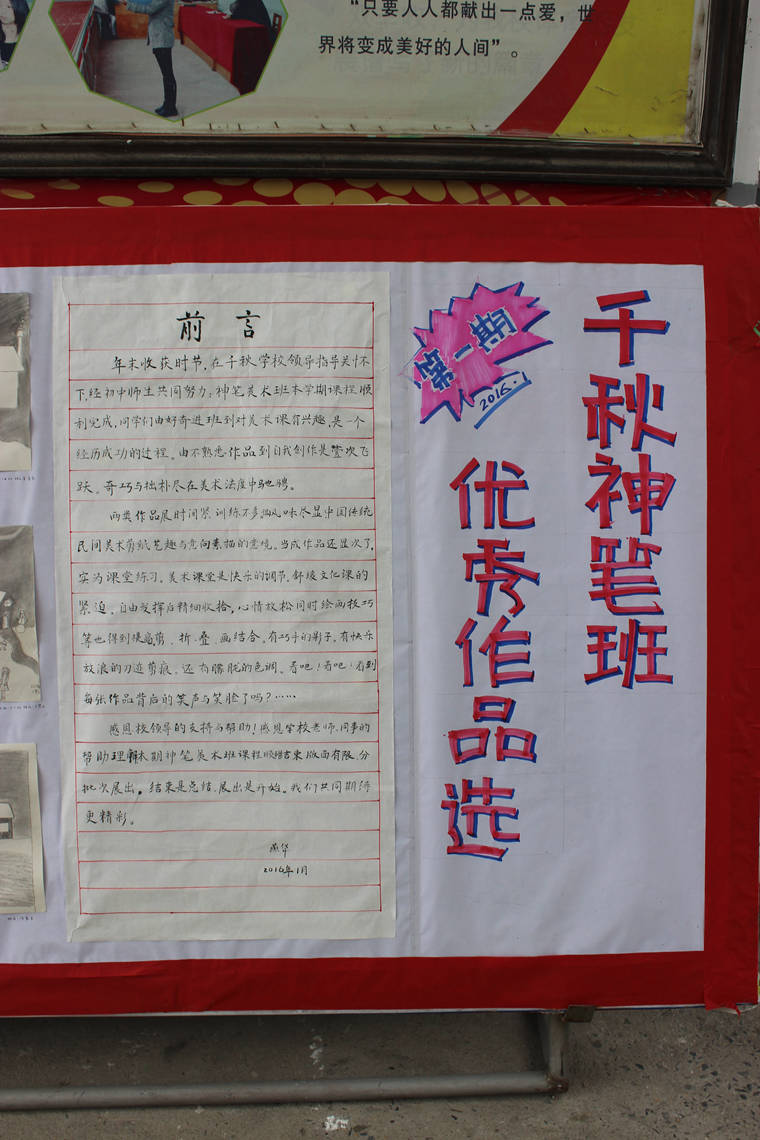 “只要人人都献出一点爱，世
界将变成美好的人间”。
千秋神笔班
第一期
2016.1
优秀作品选
前言
年末收获时节，在千秋学校领导指导关怀
下，经初中师生共同努力，神笔美术班本学期课程顺
利完成，同学们由好奇进班到对美术课有兴趣，是一个
经历成功的过程。由不熟悉作品到自我创作是一次飞
跃。奇巧与拙朴尽在美术法度中驰骋。
两类作品展时间紧，训练不多，风味尽显中国传统
民间美术剪纸笔趣与意向素描的意境。当成作品还显次了，
实为课堂练习。美术课堂是快乐的调节，舒缓文化课的
紧迫。自由发挥后精细收拾，心情放松同时绘画技巧
等也得到提高。剪、折、叠、画结合。有巧手的剪子，有快乐
放浪的刀迹剪痕。还有朦胧的色调。看吧！看吧！看到
每张作品背后的笑声与笑脸了吗？……
感恩校领导的支持与帮助！感恩学校老师、同事的
帮助理解。本期神笔美术班课程顺利结束，版面有限，分
批次展出。结束是总结，展出是开始。我们共同期待
更精彩。
燕华
2016年1月